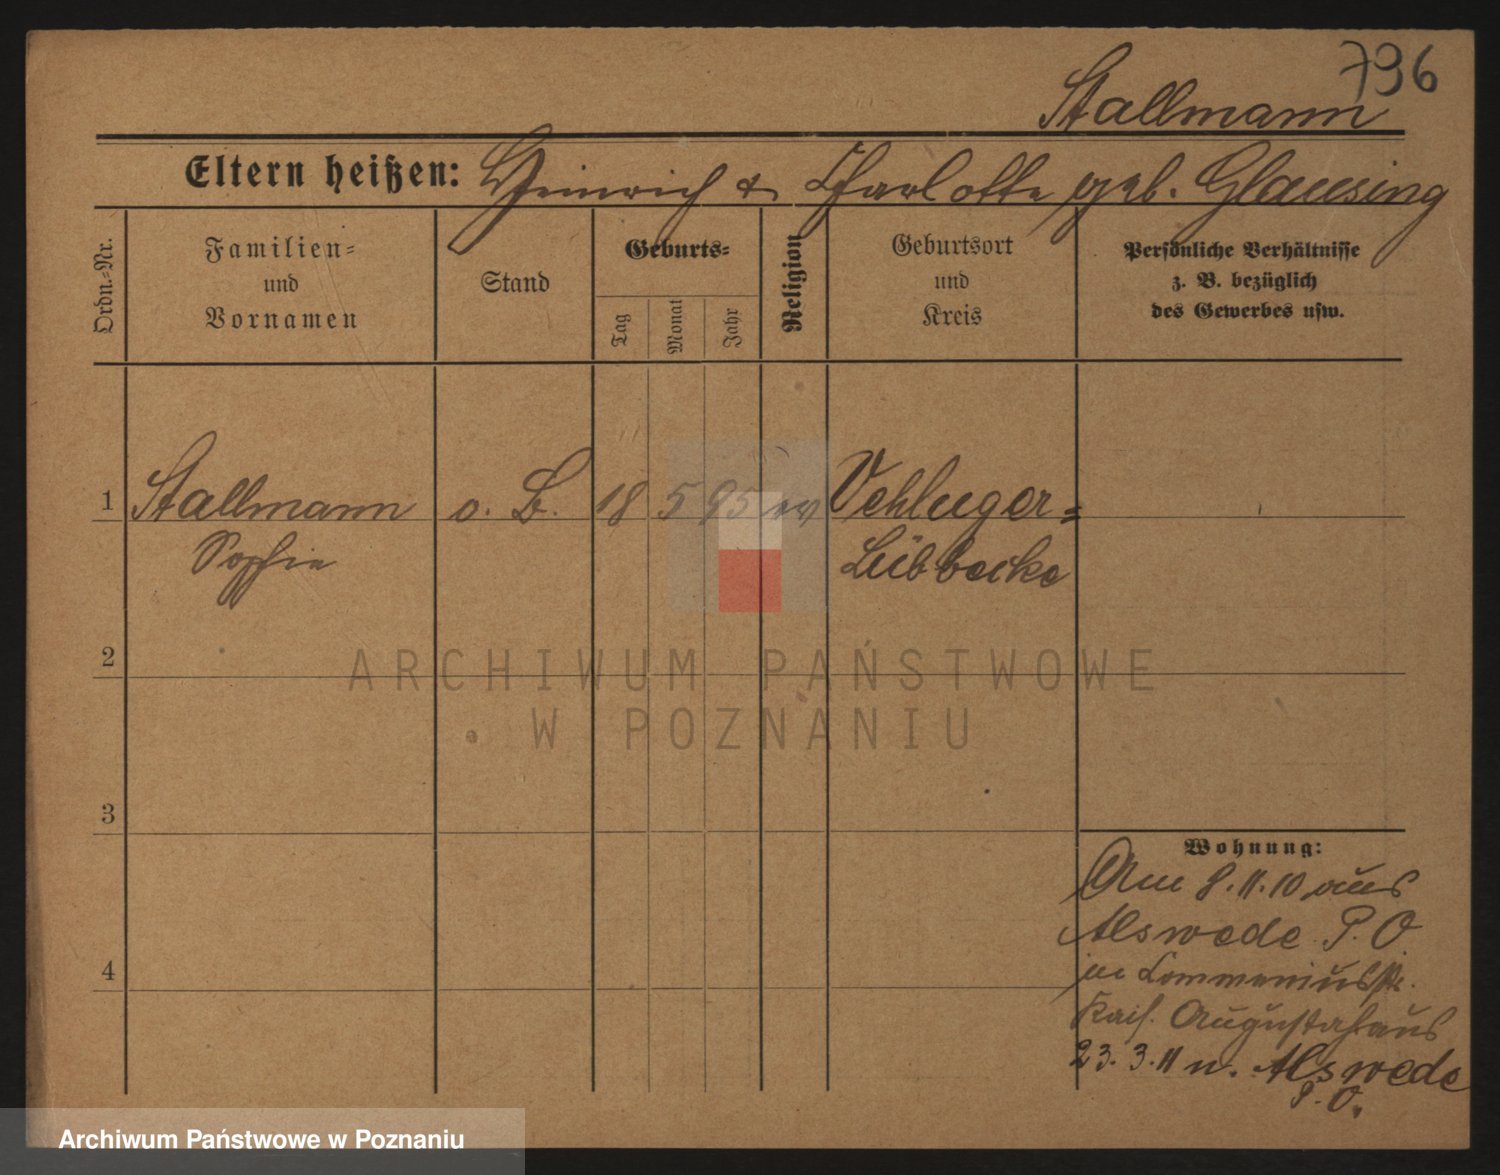 796
Stallmann
Eltern heißen: Heinrich & Charlotte geb. Glausing
Ordn.-Nr.
Familien-
und
Vornamen
Stand
Geburts-
Tag
Monat
Jahr
Religion
Geburtsort
und
Kreis
Persönliche Verhältnisse
z. B. bezüglich
des Gewerbes usw.
1 Stallmann o. B. 18 5 95 ev Vehlager-
Sophie Lübbecke
2
3
4
Wohnung:
Am 8.11.10 aus
Alswede P. O
in Commeniusstr.
Kais. Augustahaus
23. 3. 11 n. Alswede
P. O.
ARCHIWUM PAŃSTWOWE
W POZNANIU
Archiwum Państwowe w Poznaniu